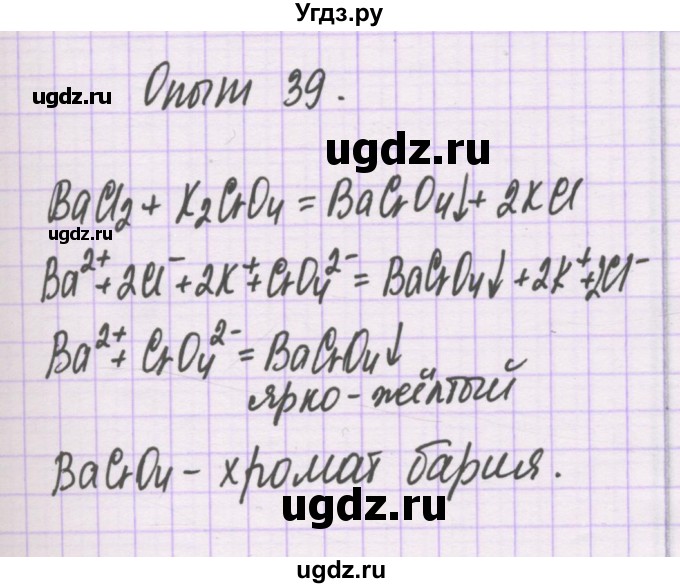 Угдз.ру
Опыт 39.
ugdz.ru
ugdz.ru
BaCl2 + K2CrO4 = BaCrO4↓ + 2KCl
ugdz.ru
Ba²⁺ + 2Cl⁻ + 2K⁺ + CrO4²⁻ = BaCrO4↓ + 2K⁺ + 2Cl⁻
Ba²⁺ + CrO4²⁻ = BaCrO4↓
ярко-жёлтый
BaCrO4 - хромат бария.
ugdz.ru
ugdz.ru